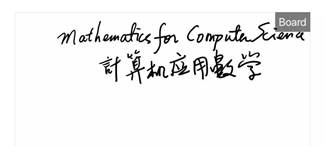 Board
Mathematics for Computer Science
計算机应用数学